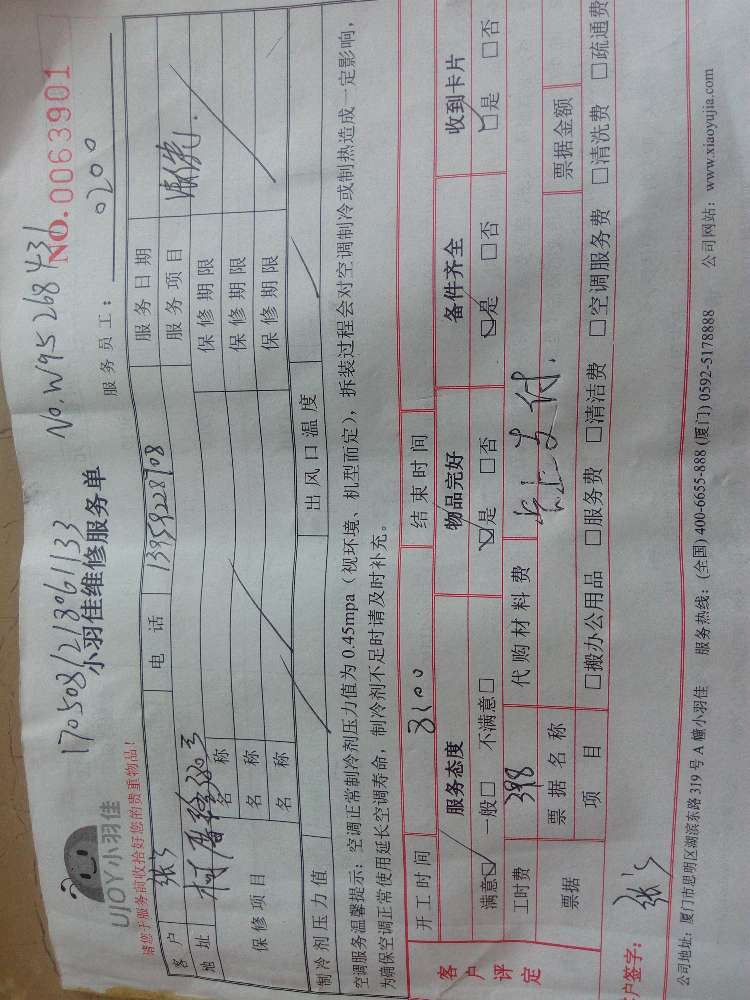 1705081213061133
No.W95268431
UIOY小羽佳
小羽佳维修服务单
NO.0063901
请您于服务前收拾好您的贵重物品!
服务员工: 0200
客户 张 电话 13959228708 服务日期
地址 服务项目
保修项目 名称 保修期限
名称 保修期限
名称 保修期限
制冷剂压力值 出风口温度
空调服务温馨提示:空调正常制冷剂压力值为0.45mpa(视环境、机型而定),拆装过程会对空调制冷或制热造成一定影响,
为确保空调正常使用延长空调寿命,制冷剂不足时请及时补充。
客户评定
开工时间 8:00 结束时间
服务态度 物品完好 备件齐全 收到卡片
满意☑ 一般□ 不满意□ ☑是 □否 ☑是 □否 ☑是 □否
工时费 398 代购材料费 线上支付.
票据 票据名称 票据金额
项目 □搬办公用品 □服务费 □清洁费 □空调服务费 □清洗费 □疏通费
户签字: 张
公司地址:厦门市思明区湖滨东路319号A幢小羽佳 服务热线:(全国)400-6655-888(厦门)0592-5178888 公司网站:www.xiaoyujia.com